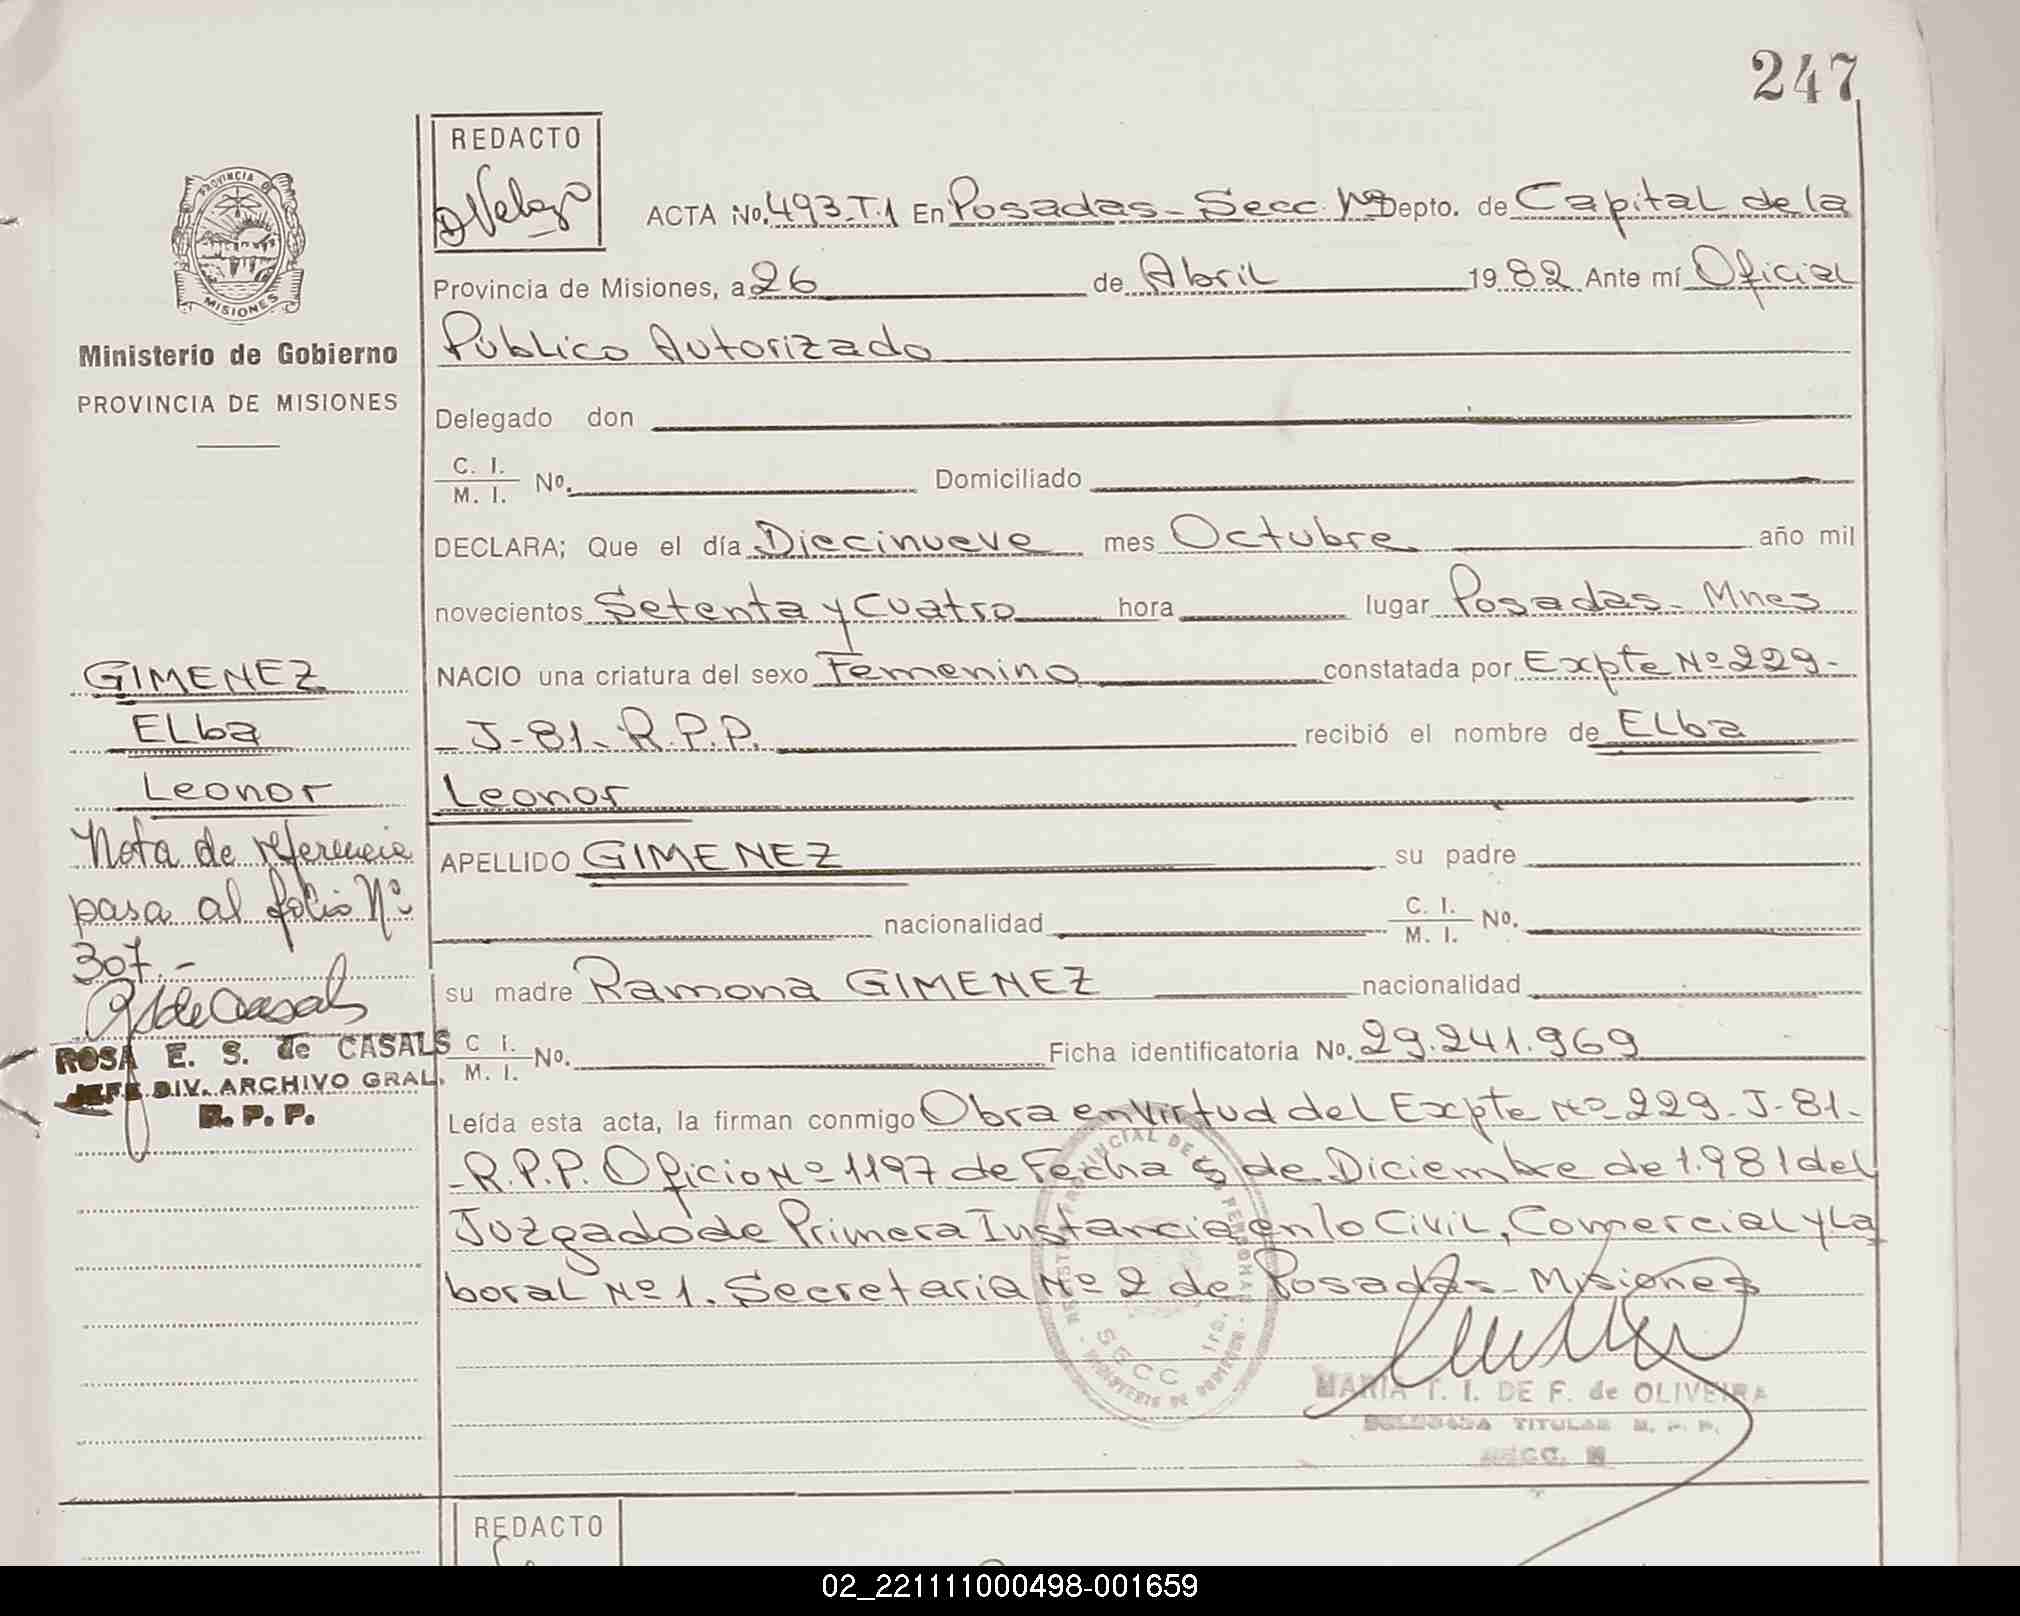 247
REDACTO
PROVINCIA DE
MISIONES
ACTA No. 493-T.1 En Posadas - Secc. Depto. de Capital de la
Provincia de Misiones, a 26 de Abril 1982 Ante mí Oficial
Ministerio de Gobierno
Público Autorizado
PROVINCIA DE MISIONES
Delegado don
C. I.
M. I. No. Domiciliado
DECLARA; Que el día Diecinueve mes Octubre año mil
novecientos Setenta y Cuatro hora lugar Posadas - Mnes
GIMENEZ
NACIO una criatura del sexo Femenino constatada por Expte Nº 229-
ELba
- J-81- R.P.P. recibió el nombre de ELba
Leonor
Leonor
Nota de referencia
APELLIDO GIMENEZ su padre
pasa al folio Nº
nacionalidad C. I.
M. I. No.
307.-
su madre Ramona GIMENEZ nacionalidad
ROSA E. S. de CASALS
JEFE DIV. ARCHIVO GRAL.
R. P. P.
C. I.
M. I. No. Ficha identificatoria No. 29.241.969
Leída esta acta, la firman conmigo Obra en Virtud del Expte Nº 229-J-81-
-R.P.P. Oficio Nº 1197 de Fecha 5 de Diciembre de 1.981 del
Juzgado de Primera Instancia en lo Civil, Comercial y La
boral Nº 1. Secretaria Nº 2 de Posadas - Misiones
SECC 1ra.
MARIA T. I. DE F. de OLIVEIRA
DELEGADA TITULAR R. P. P.
REDACTO
02_221111000498-001659